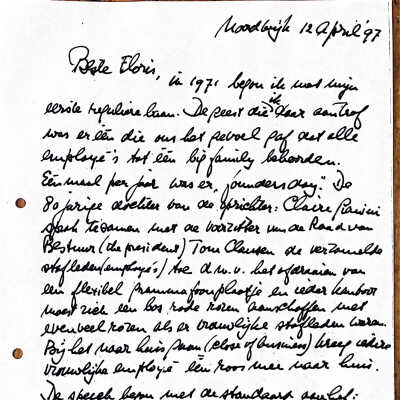 Noordwijk 12 April '97
Beste Floris,
in 1971 begon ik met mijn
eerste reguliere baan. De geest die ik daar aantrof
was er één die ons het gevoel gaf dat alle
employé's tot één big family behoorden.
Eén maal per jaar was er "foundersday". De
80 jarige dochter van de oprichter: Claire Giannini
sprak tesamen met de voorzitter van de Raad van
Bestuur (the president) Tom Clausen de verzamelde
stafleden (employé's) toe d.m.v. het afdraaien van
een flexibel grammofoonplaatje en ieder kantoor
moest zich een bos rode rozen aanschaffen met
evenveel rozen als er vrouwelijke stafleden waren.
Bij het naar huis gaan (close of business) kreeg iedere
vrouwelijke employé één roos mee naar huis.
De speech begon met de standaard